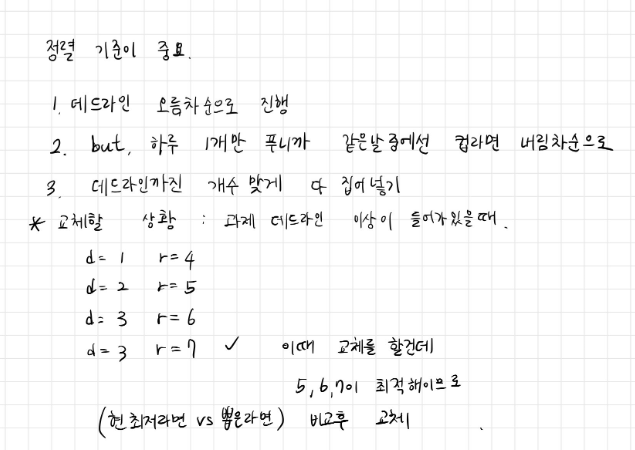 정렬 기준이 중요.
1. 데드라인 오름차순으로 진행
2. but, 하루 1개만 푸니까 같은날 중에선 컵라면 내림차순으로
3. 데드라인까진 개수 맞게 다 집어넣기
* 교체할 상황 : 과제 데드라인 이상이 들어가있을때.
d= 1 r=4
d= 2 r=5
d= 3 r=6
d= 3 r=7 ✓ 이때 교체를 할건데
5, 6, 7이 최적해이므로
(현 최저라면 vs 뽑은라면) 비교후 교체 .